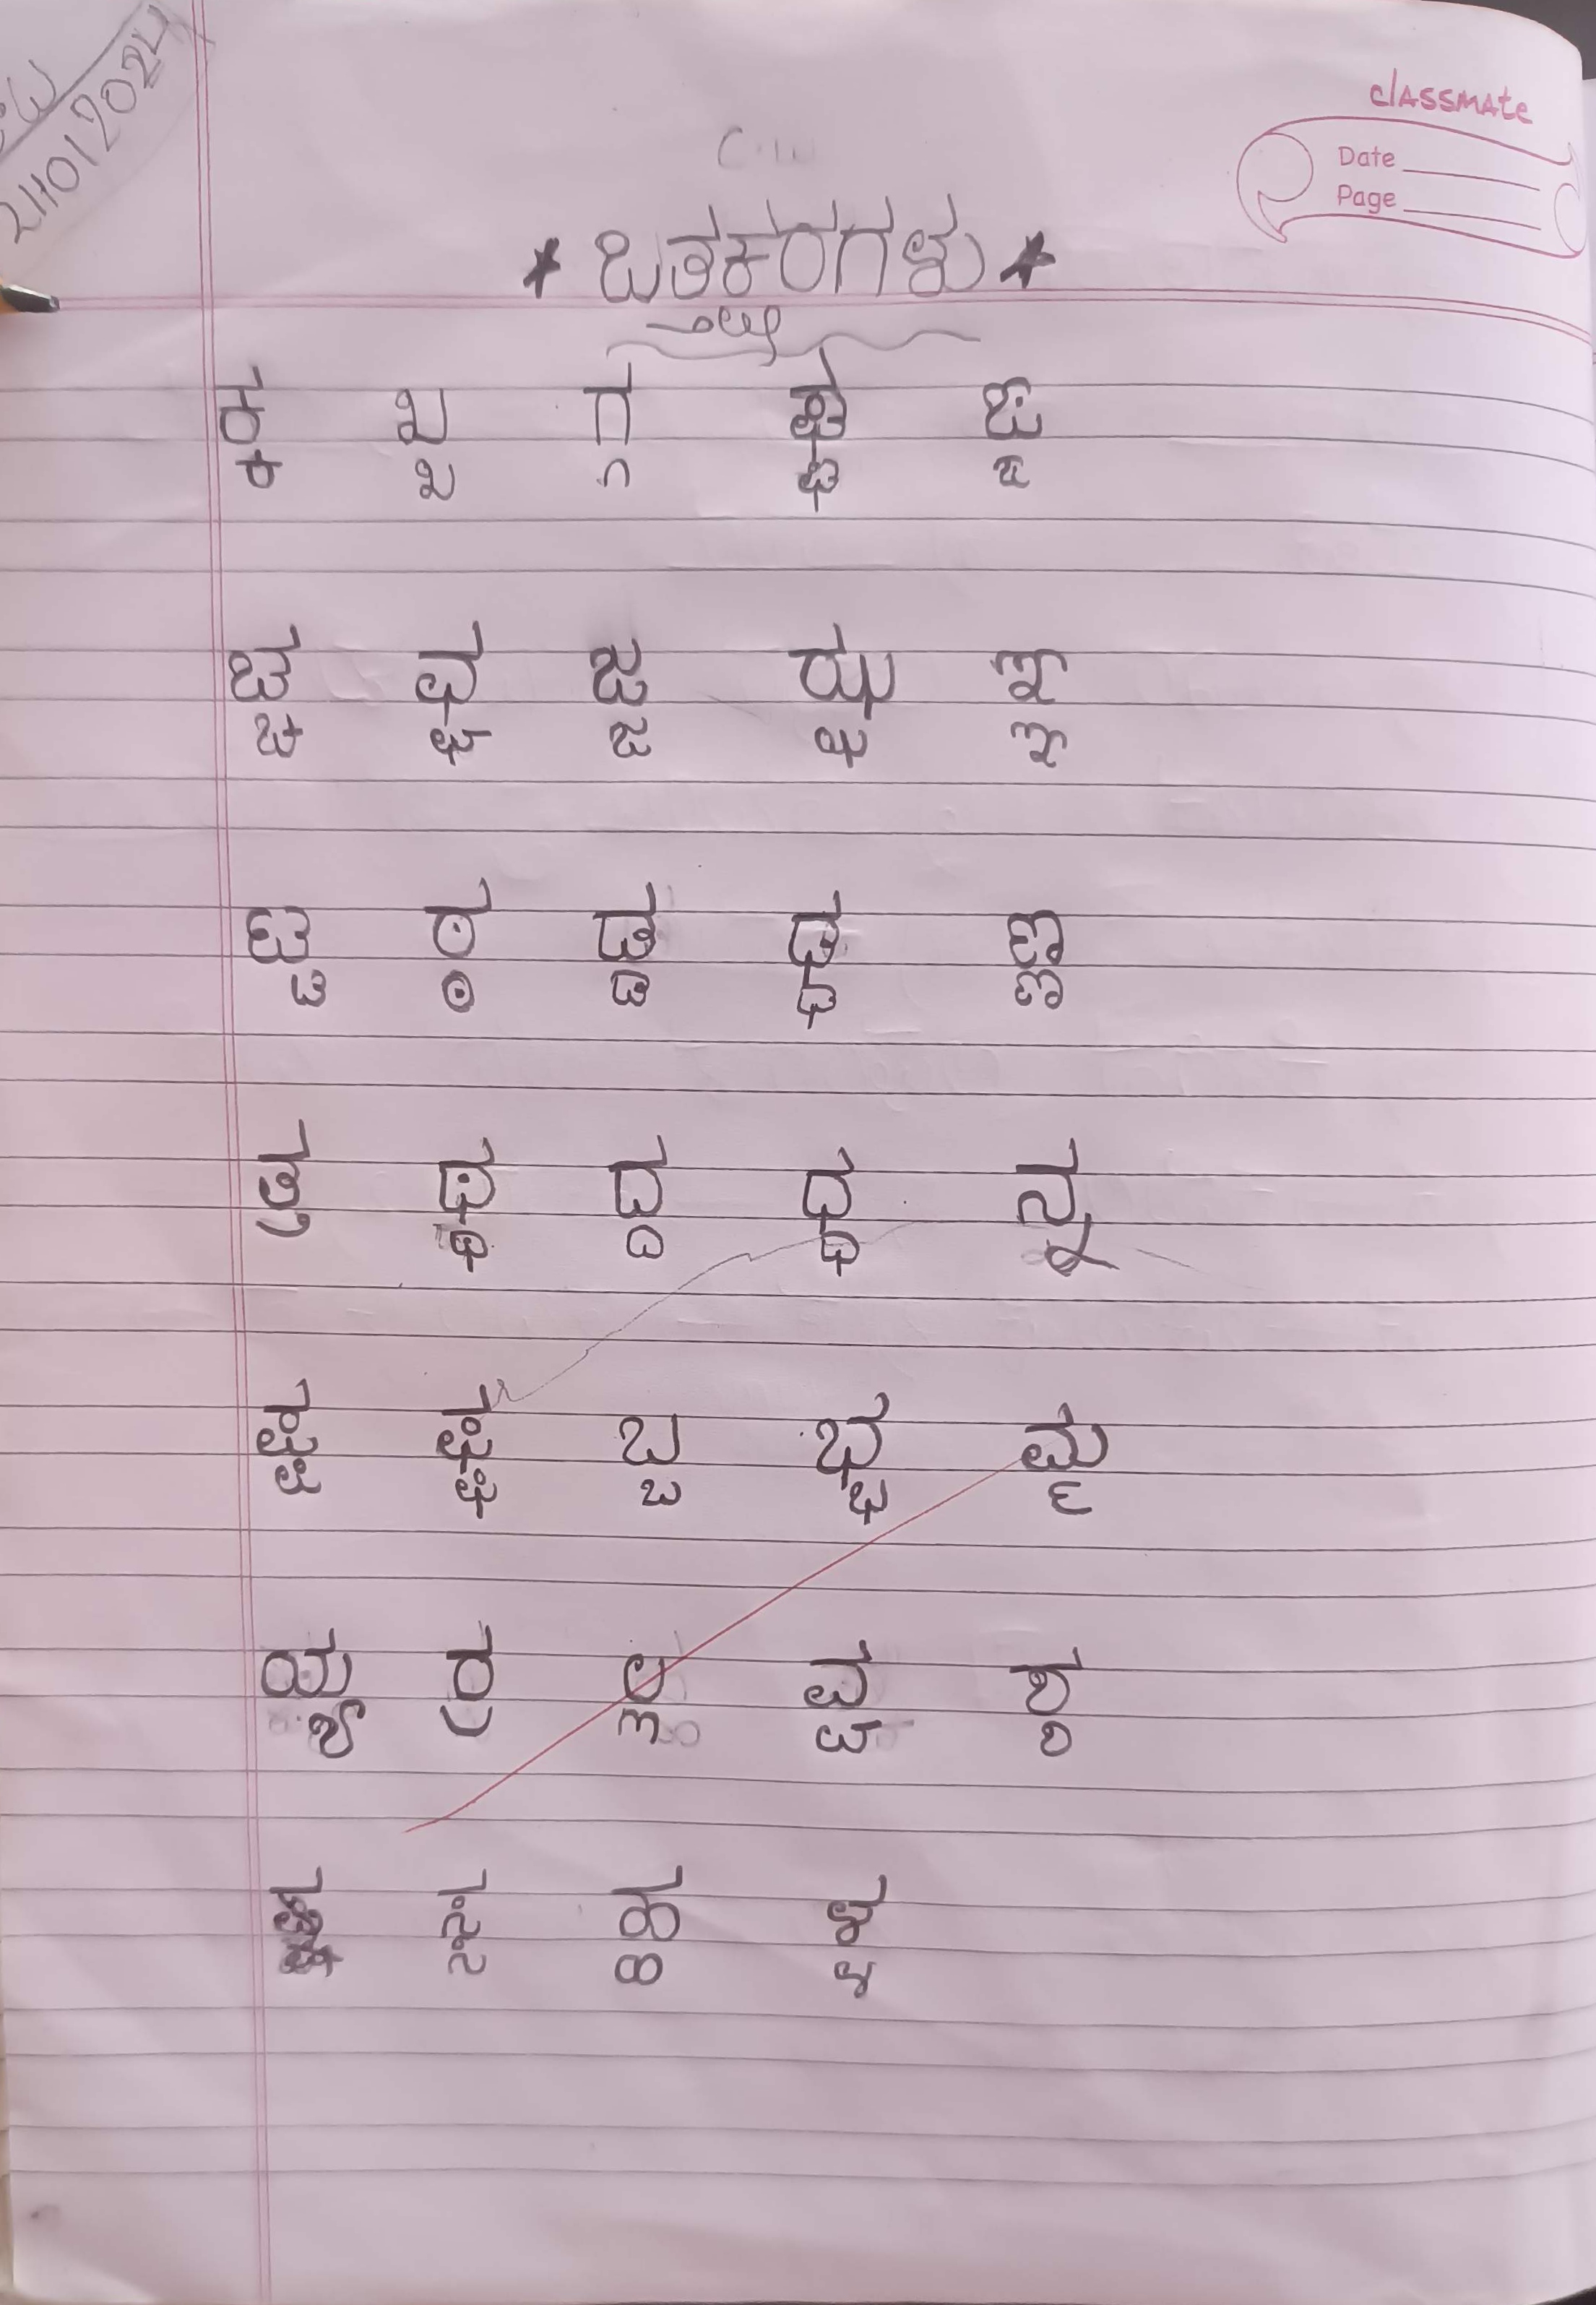 classmate
Date
Page
C.W
21/10/2024
* ಒತಕರಗಳು *
ಕ್ಕ ಖ್ಖ ಗ್ಗ ಘ್ಘ ಙ್ಙ
ಚ್ಚ ಛ್ಛ ಜ್ಜ ಝ್ಝ ಞ್ಞ
ಟ್ಟ ಠ್ಠ ಡ್ಡ ಢ್ಢ ಣ್ಣ
ತ್ತ ಥ್ಥ ದ್ದ ಧ್ಧ ನ್ನ
ಪ್ಪ ಫ್ಫ ಬ್ಬ ಭ್ಭ ಮ್ಮ
ಯ್ಯ ರ್ರ ಲ್ಲ ವ್ವ ಶ್ಶ
ಷ್ಷ ಸ್ಸ ಹ್ಹ ಳ್ಳ